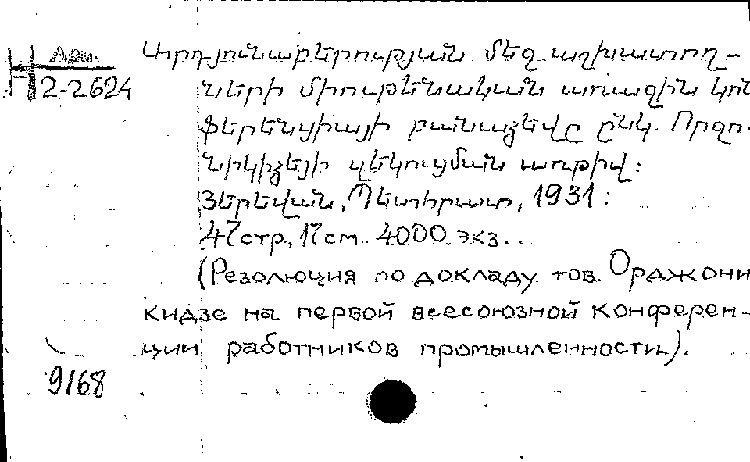 Арм.
Н 2-2624
Արդյունաբերության մեջ աշխատող-
ների միութենական առաջին կոն
ֆերենցիայի բանաձեվը ընկ. Որջո-
նիկիձեյի զեկուցման առթիվ:
Յերեվան, Պետհրատ, 1931:
47стр, 17см. 4000 экз..
(Резолюция по докладу тов. Оражони
кидзе на первой всесоюзной конферен-
ции работников промышленности).
9168